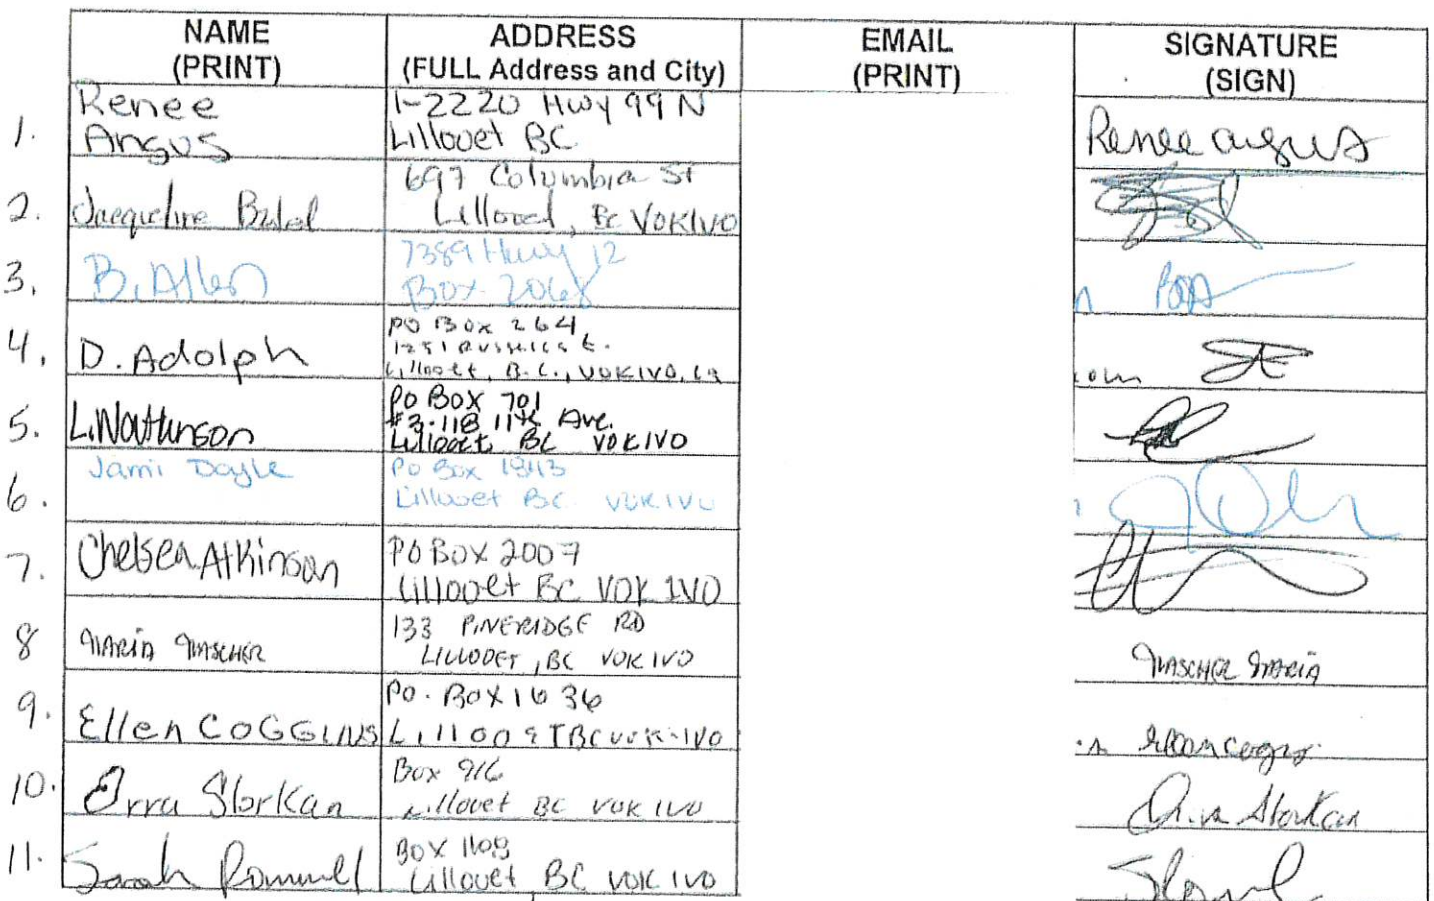 NAME (PRINT) ADDRESS (FULL Address and City) EMAIL (PRINT) SIGNATURE (SIGN)
1. Renee Angus 1-2220 Hwy 99 N Renee Angus
Lillooet BC
2. Jacqueline 697 Columbia St
Lillooet, BC V0K1V0
3. B. Allen 7389 Hwy 12
Box 2068
4. D. Adolph PO Box 264
Lillooet, B.C., V0K1V0
5. PO BOX 701
#3-118 11th Ave.
Lillooet BC V0K1V0
6. Jami Doyle PO Box 1843
Lillooet BC V0K1V0
7. Chelsea Atkinson PO BOX 2007
Lillooet BC V0K 1V0
8 MARIA MASCHER 133 PINERIDGE RD MASCHER MARIA
LILLOOET, BC V0K 1V0
9. Ellen COGGINS PO. BOX 1036
LillooeT BC V0K-1V0
10. Storkan Box 916 Storkan
Lillooet BC V0K 1V0
11. Sarah Rommel Box 1108
Lillooet BC V0K 1V0